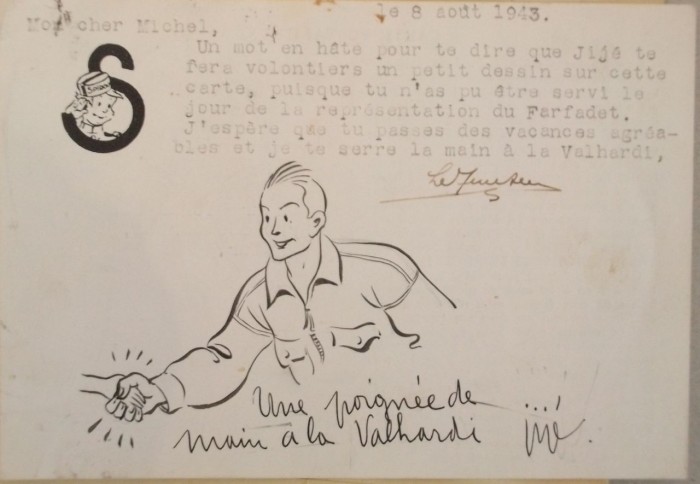 le 8 août 1943.
Mon cher Michel,
Un mot en hâte pour te dire que Jijé te
fera volontiers un petit dessin sur cette
carte, puisque tu n'as pu être servi le
jour de la représentation du Farfadet.
J'espère que tu passes des vacances agréa-
bles et je te serre la main à la Valhardi,
Une poignée de
main à la Valhardi
Jijé.